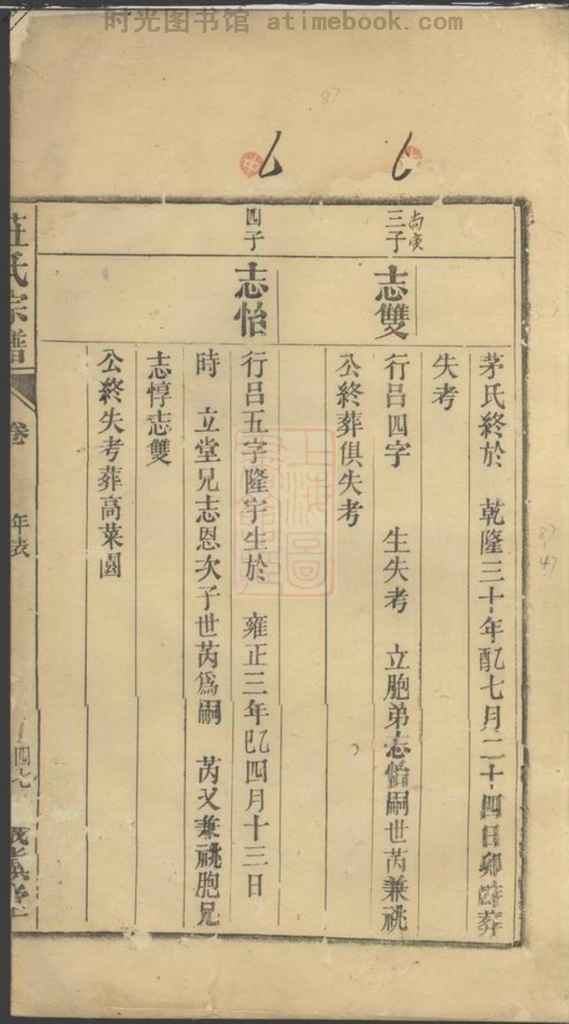 时光图书馆 atimebook.com
茅氏終於 乾隆三十年乙酉七月二十四日卯時葬
失考
三子
志雙
行呂四字 生失考 立胞弟志怡嗣世芮兼祧
公終葬俱失考
四子
志怡
行呂五字隆宇生於 雍正三年乙巳四月十三日
時 立堂兄志恩次子世芮為嗣 芮又兼祧胞兄
志惇志雙
公終失考葬高菜園
氏宗譜
卷
年表
四七